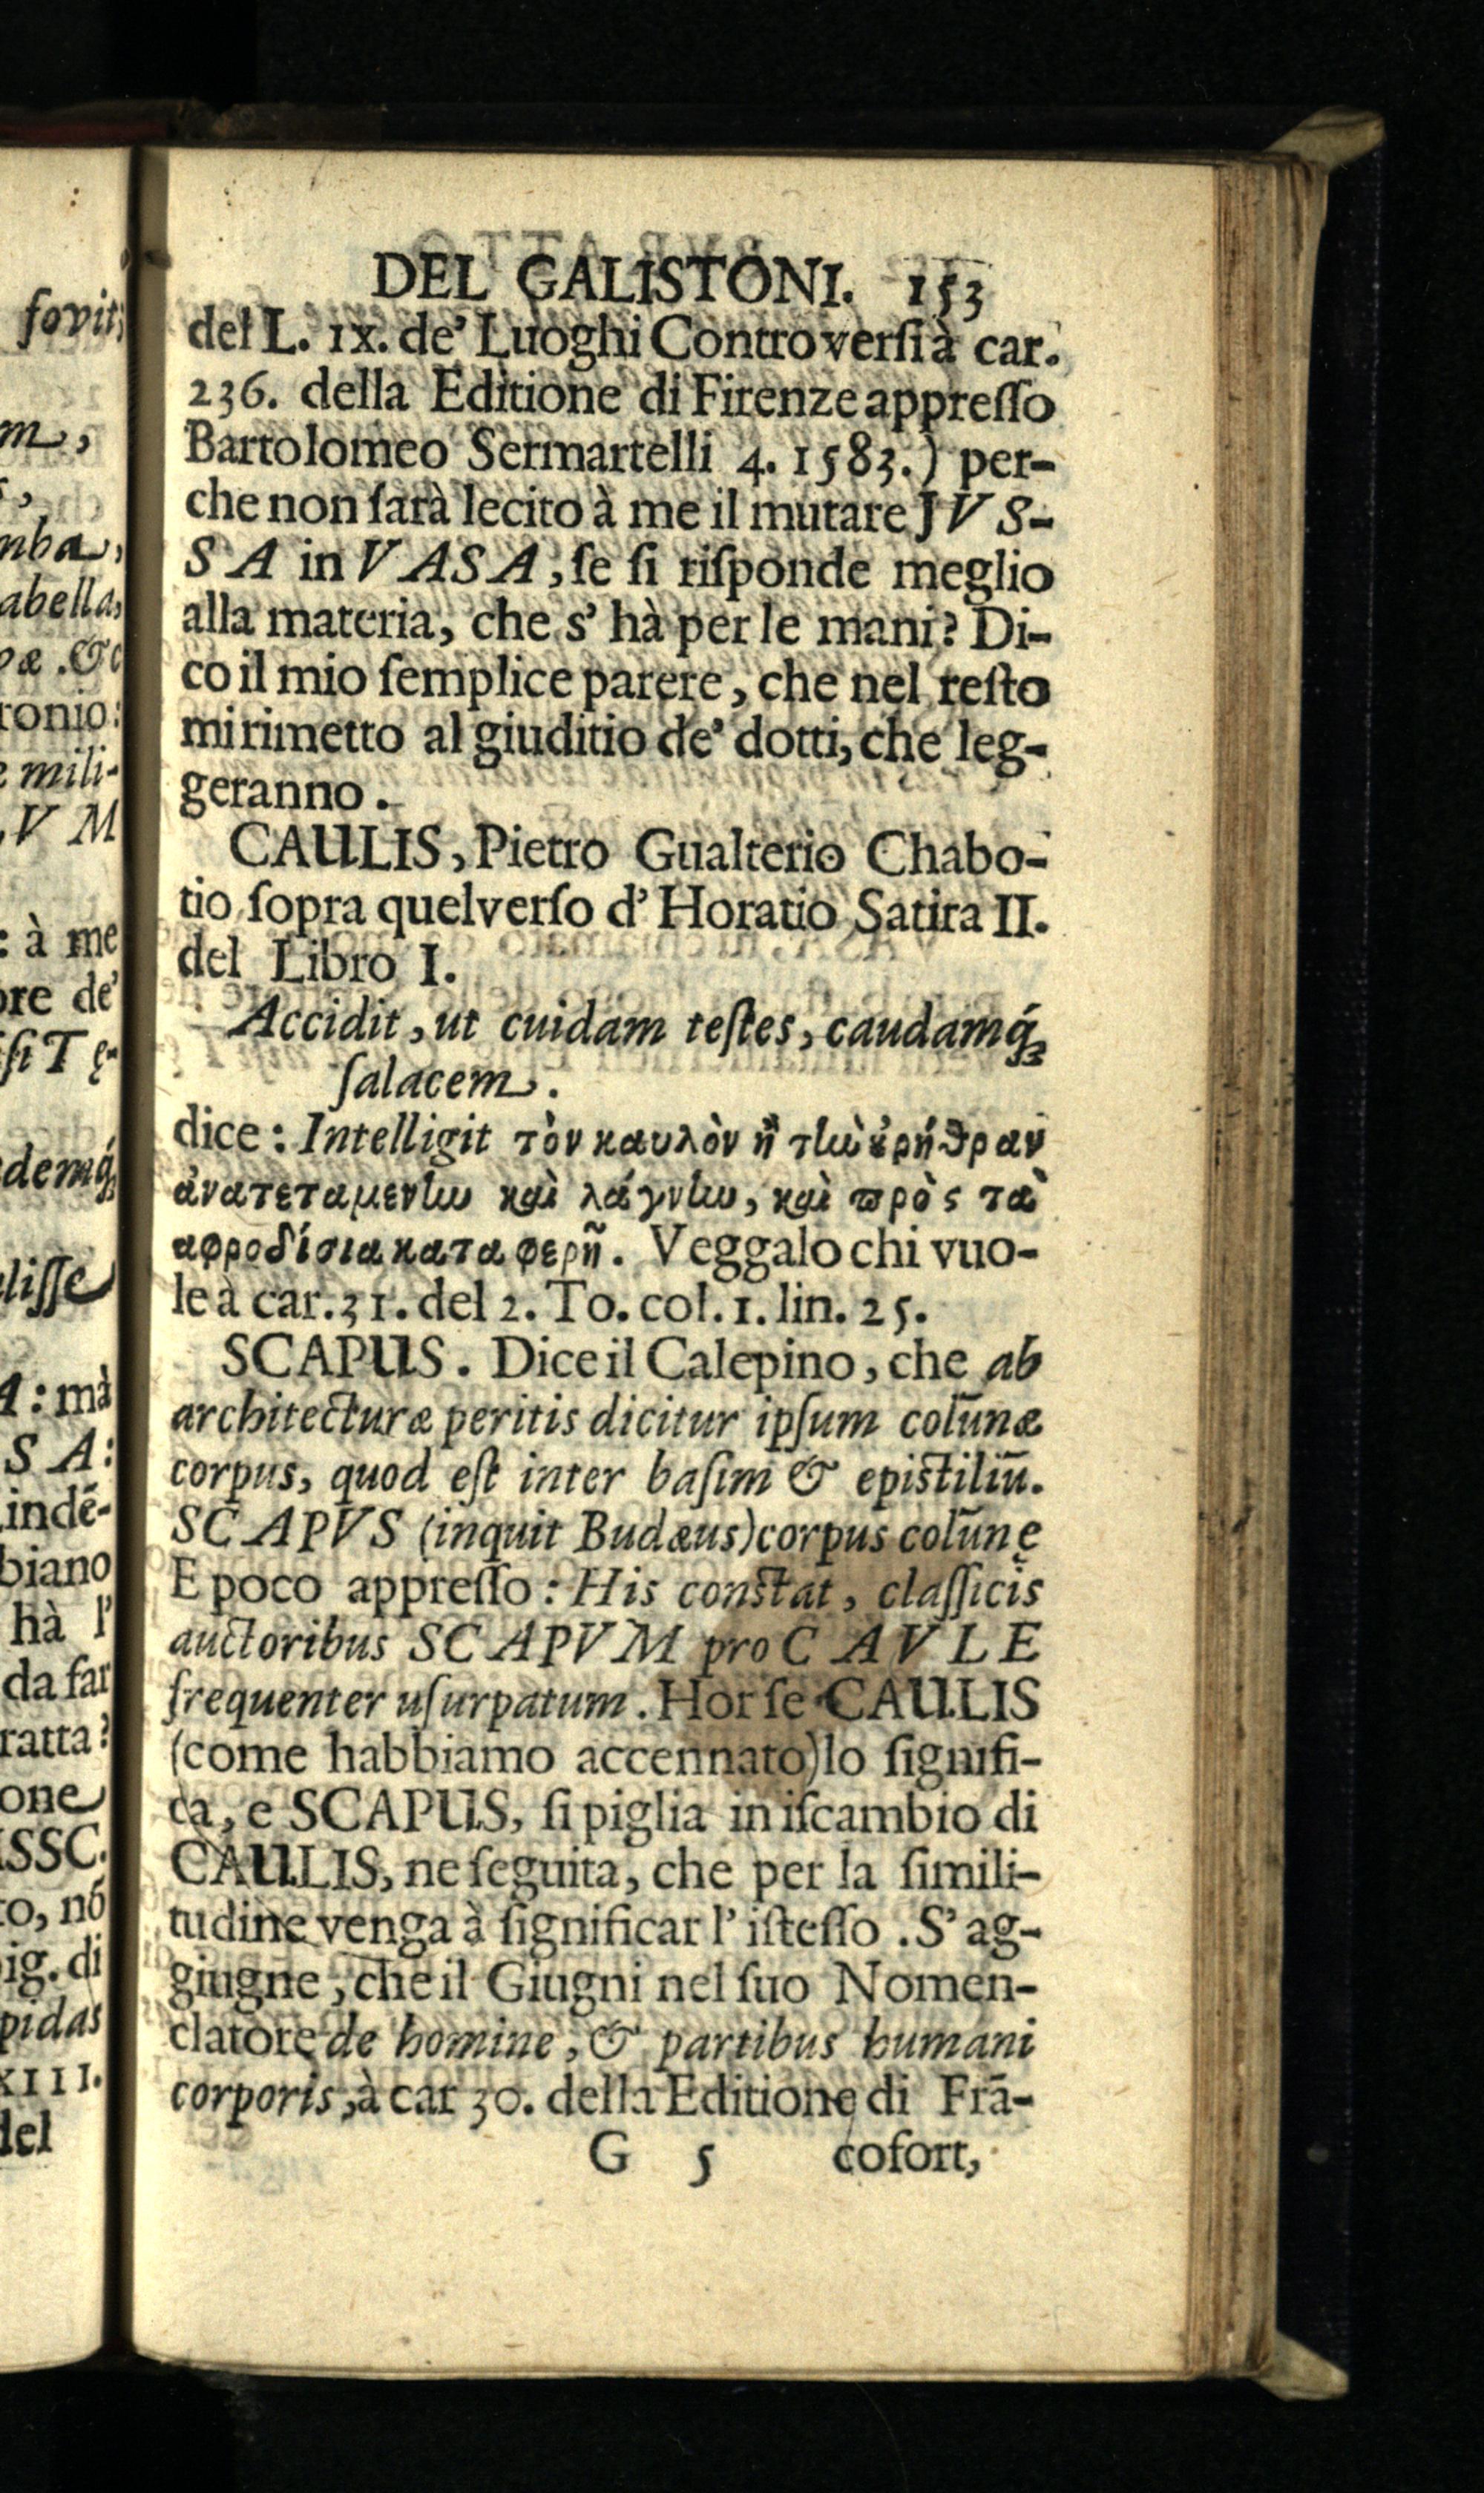 DEL GALISTONI. 153
del L. IX. de' Luoghi Controversi à car.
236. della Editione di Firenze appresso
Bartolomeo Sermartelli 4. 1583.) per-
che non sarà lecito à me il mutare JVS-
SA in VASA, se si risponde meglio
alla materia, che s' hà per le mani? Di-
co il mio semplice parere, che nel resto
mi rimetto al giuditio de' dotti, che leg-
geranno.
CAULIS, Pietro Gualterio Chabo-
tio sopra quel verso d' Horatio Satira II.
del Libro I.
Accidit, ut cuidam testes, caudamq́;
salacem.
dice: Intelligit τὸν καυλὸν ἢ τὴν ὀρήθραν
ἀνατεταμενην καὶ λάγνην, καὶ πρὸς τὰ
αφροδίσια καταφερῆ. Veggalo chi vuo-
le à car. 31. del 2. To. col. 1. lin. 25.
SCAPUS. Dice il Calepino, che ab
architecturæ peritis dicitur ipsum colūnæ
corpus, quod est inter basim & epistiliū.
SCAPVS (inquit Budæus) corpus colūnę
E poco appresso: His constat, classicis
auctoribus SCAPVM pro CAVLE
frequenter usurpatum. Hor se CAULIS
(come habbiamo accennato) lo signifi-
ca, e SCAPUS, si piglia in iscambio di
CAULIS, ne seguita, che per la simili-
tudine venga à significar l' istesso. S' ag-
giugne, che il Giugni nel suo Nomen-
clatore de homine, & partibus humani
corporis, à car 30. della Editione di Frā-
G 5 cofort,